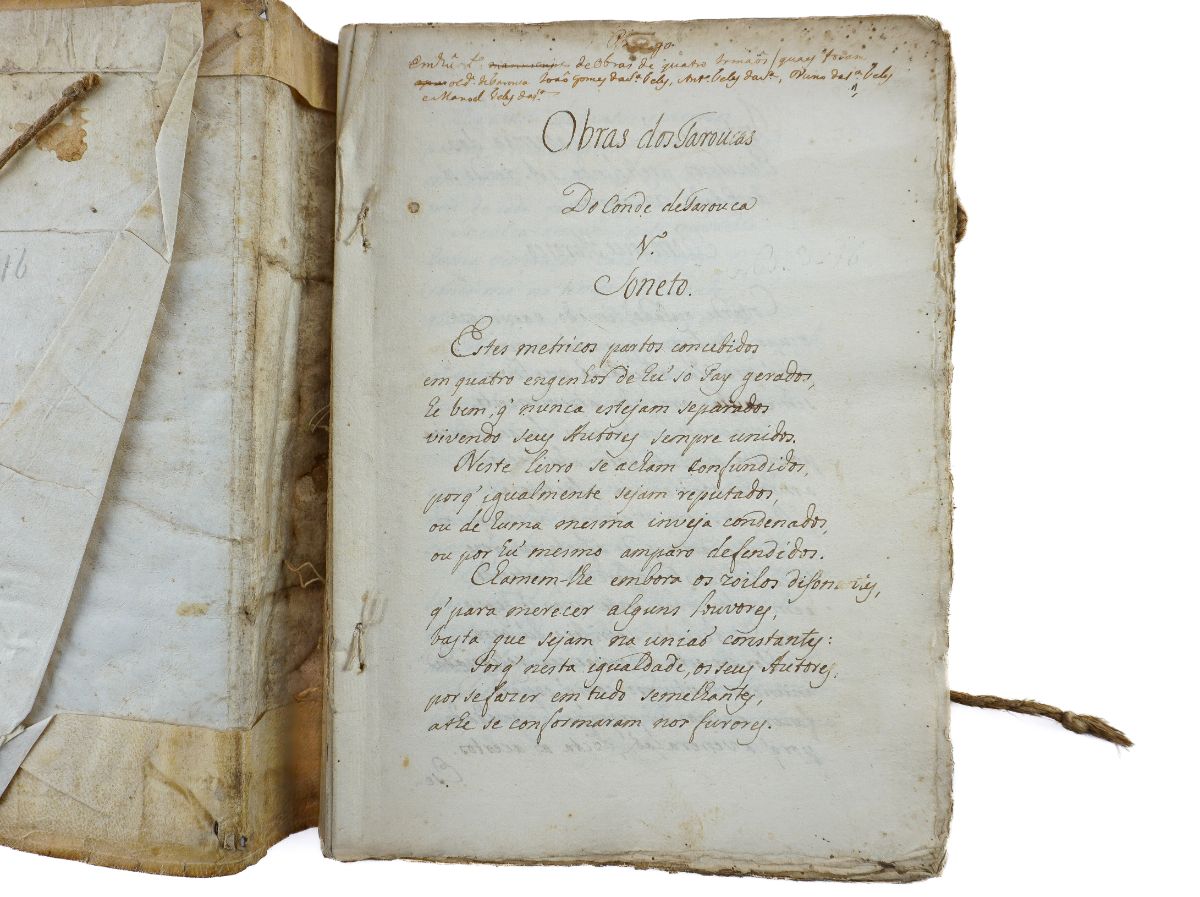 de Obras de quatro Irmaõs, quaes foram
João Gomes da Sª Telles, Antº Telles da Sª, Nuno da Sª Telles
e Manoel Telles da Sª
Obras dos Taroucas
Do Conde de Tarouca
V.
Soneto.
Estes metricos partos concebidos
em quatro engenhos de hũ só Pay gerados,
he bem, q̃ nunca estejam separados
vivendo seus Autores sempre unidos.
Neste livro se acham confundidos,
porq̃ igualmente sejam reputados,
ou de huma mesma inveja condenados,
ou por hũ mesmo amparo defendidos.
Chamem-lhe embora os zoilos disonantes,
q̃ para merecer alguns louvores,
basta que sejam na uniaõ constantes:
Porq̃ nesta igualdade, os seus Autores,
por se fazer em tudo semelhantes,
athe se conformaram nos furores.